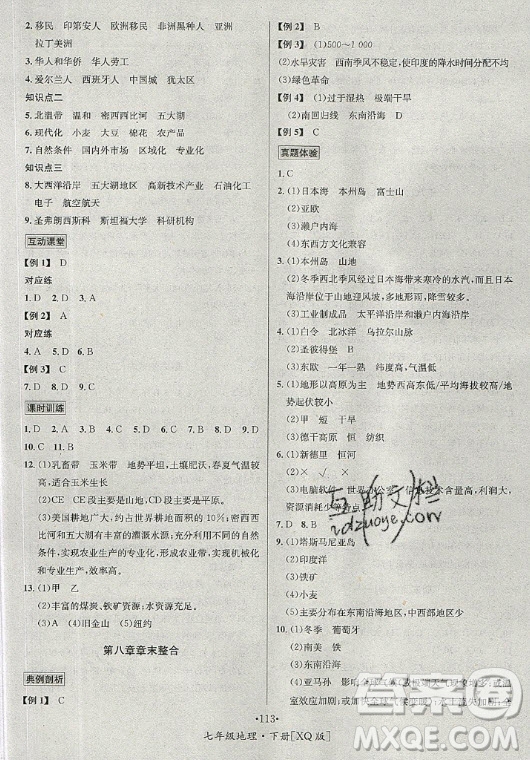 2. 移民 印第安人 非洲黑人 亚洲
拉丁美洲
3. 华人和华侨 劳动力
4. 爱尔兰人 西班牙人 中国城 犹太区
知识点二
5. 北温带 温和 密西西比 五大湖
6. 现代化 小麦 大豆 棉花 农产品
7. 自然条件 地区专业化 专业化
知识点三
8. 大西洋沿岸 五大湖地区 高新技术产业 石油化工
电子 航空航天
9. 圣弗朗西斯科 斯坦福大学 科研机构
互动课堂
【例 1】 D
对应练
1. D 2. D 3. D
【例 2】 A
对应练
4. A 5. D 6. B
【例 3】 C
7. D 8. B
课时训练
1. B 2. D 3. A 4. D 5. C 6. B 7. D 8. D 9. D
10. C 11. B
12. (1)乳畜带 玉米带 地势平坦,土壤肥沃,春夏气温较
高,适合玉米生长
(2)CE CE 段地形为山地,ED 段地形为平原
(3)美国耕地广大,约占世界耕地总面积的 10%;密西西
比河和五大湖有丰富的灌溉水源;充分利用自然条件,
实现农业生产的专业化,形成农业带,实现机械化
和专业化生产,提高生产效率
13. (1)甲 乙
(2)丰富的煤炭、铁矿资源;水运便利
(3)A (4)旧金山
第八章章末整合
典例剖析
【例 1】 C
【例 2】 B
【例 3】 (1)500~1 000
(2)水旱灾害 西南季风不稳定,使印度的降水时间分配不均
(3)绿色革命
【例 4】 (1)过于湿热 极端干旱
(2)南回归线 东南沿海
【例 5】 C
真题体验
1. C
2. (1)日本海 本州岛 富士山
(2)亚欧
(3)濑户内海
(4)东西方文化兼容
3. (1)本州岛 山地
(2)冬季西北季风经过日本海带来寒冷的水汽,而日本
西海岸以山地为主,山地迎风坡,多地形雨,降水较
多,降雪较多。
(3)工业制成品 太平洋沿岸和濑户内海沿岸
4. (1)白令 北冰洋 乌拉尔山脉
(2)圣彼得堡
(3)B
(4)叶尼塞 北 纬度高,气温低
5. (1)地形以高原为主 地势西低东高/平均海拔较高/地
势起伏较小
(2)草原 干旱
(3)德干高原 纺织
6. (1)新德里 恒河
(2)× √ ×
(3)电脑软件
7. D 8. B
9. (1)塔斯马尼亚岛
(2)印度洋
(3)铁矿
(4)小麦
(5)主要分布在东南沿海地区,中西部地区少
10. (1)冬季 葡萄牙
(2)西 B
(3)东南沿海
11. (1)亚马孙
·113·
七年级地理·下册[XQ版]
互助文档
zdzuoye.com
答案圈